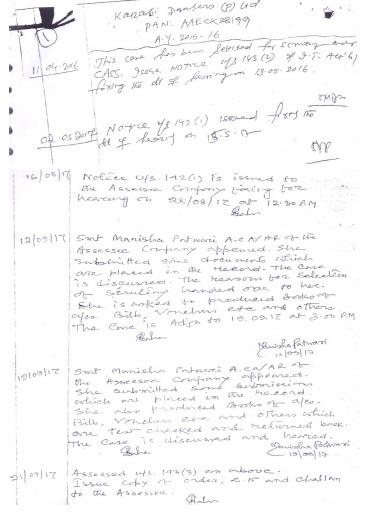 Karnani Dealers (P) Ltd
PAN: AAECK2819Q
A.Y. 2015-16
11.04.2016 This case has been selected for scrutiny under
CASS. Issue Notice u/s 143(2) of I.T. Act'61
fixing the dt of hearing on 13.05.2016
02.05.2017 Notice u/s 142(1) issued fixing the
dt of hearing on
16/08/17 Notice u/s. 142(1) is issued to
the Assessee Company fixing for
hearing on 28/08/17 at 12.30 P.M
12/09/17 Smt Manisha Patwari A.CA/AR of the
Assessee Company appeared. She
submitted some documents which
are placed in the record. The case
is discussed. The reasons for selection
of scrutiny handed over to her.
She is asked to produced Books of
a/co. Bills, Vouchers etc and others
The Case is Adjn to 19.09.17 at 3.00 P.M
Manisha Patwari
12/09/17
19/09/17 Smt Manisha Patwari A.CA/AR of
the Assessee Company appeared.
She submitted some submissions
which are placed in the record.
She also produced Books of a/co.
Bills, Vouchers etc and others which
are test checked and returned back.
The Case is discussed and heard.
Manisha Patwari
19/09/17
21/09/17 Assessed u/s. 143(3) as above.
Issue Copy of order, D.N and challan
to the Assessee.